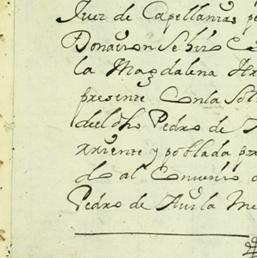 Juez de Capellanias
Donacion Se hizo
la Magdalena
presente Con la
del dho Pedro de
y poblada
do al Convento
Pedro de Avila Me